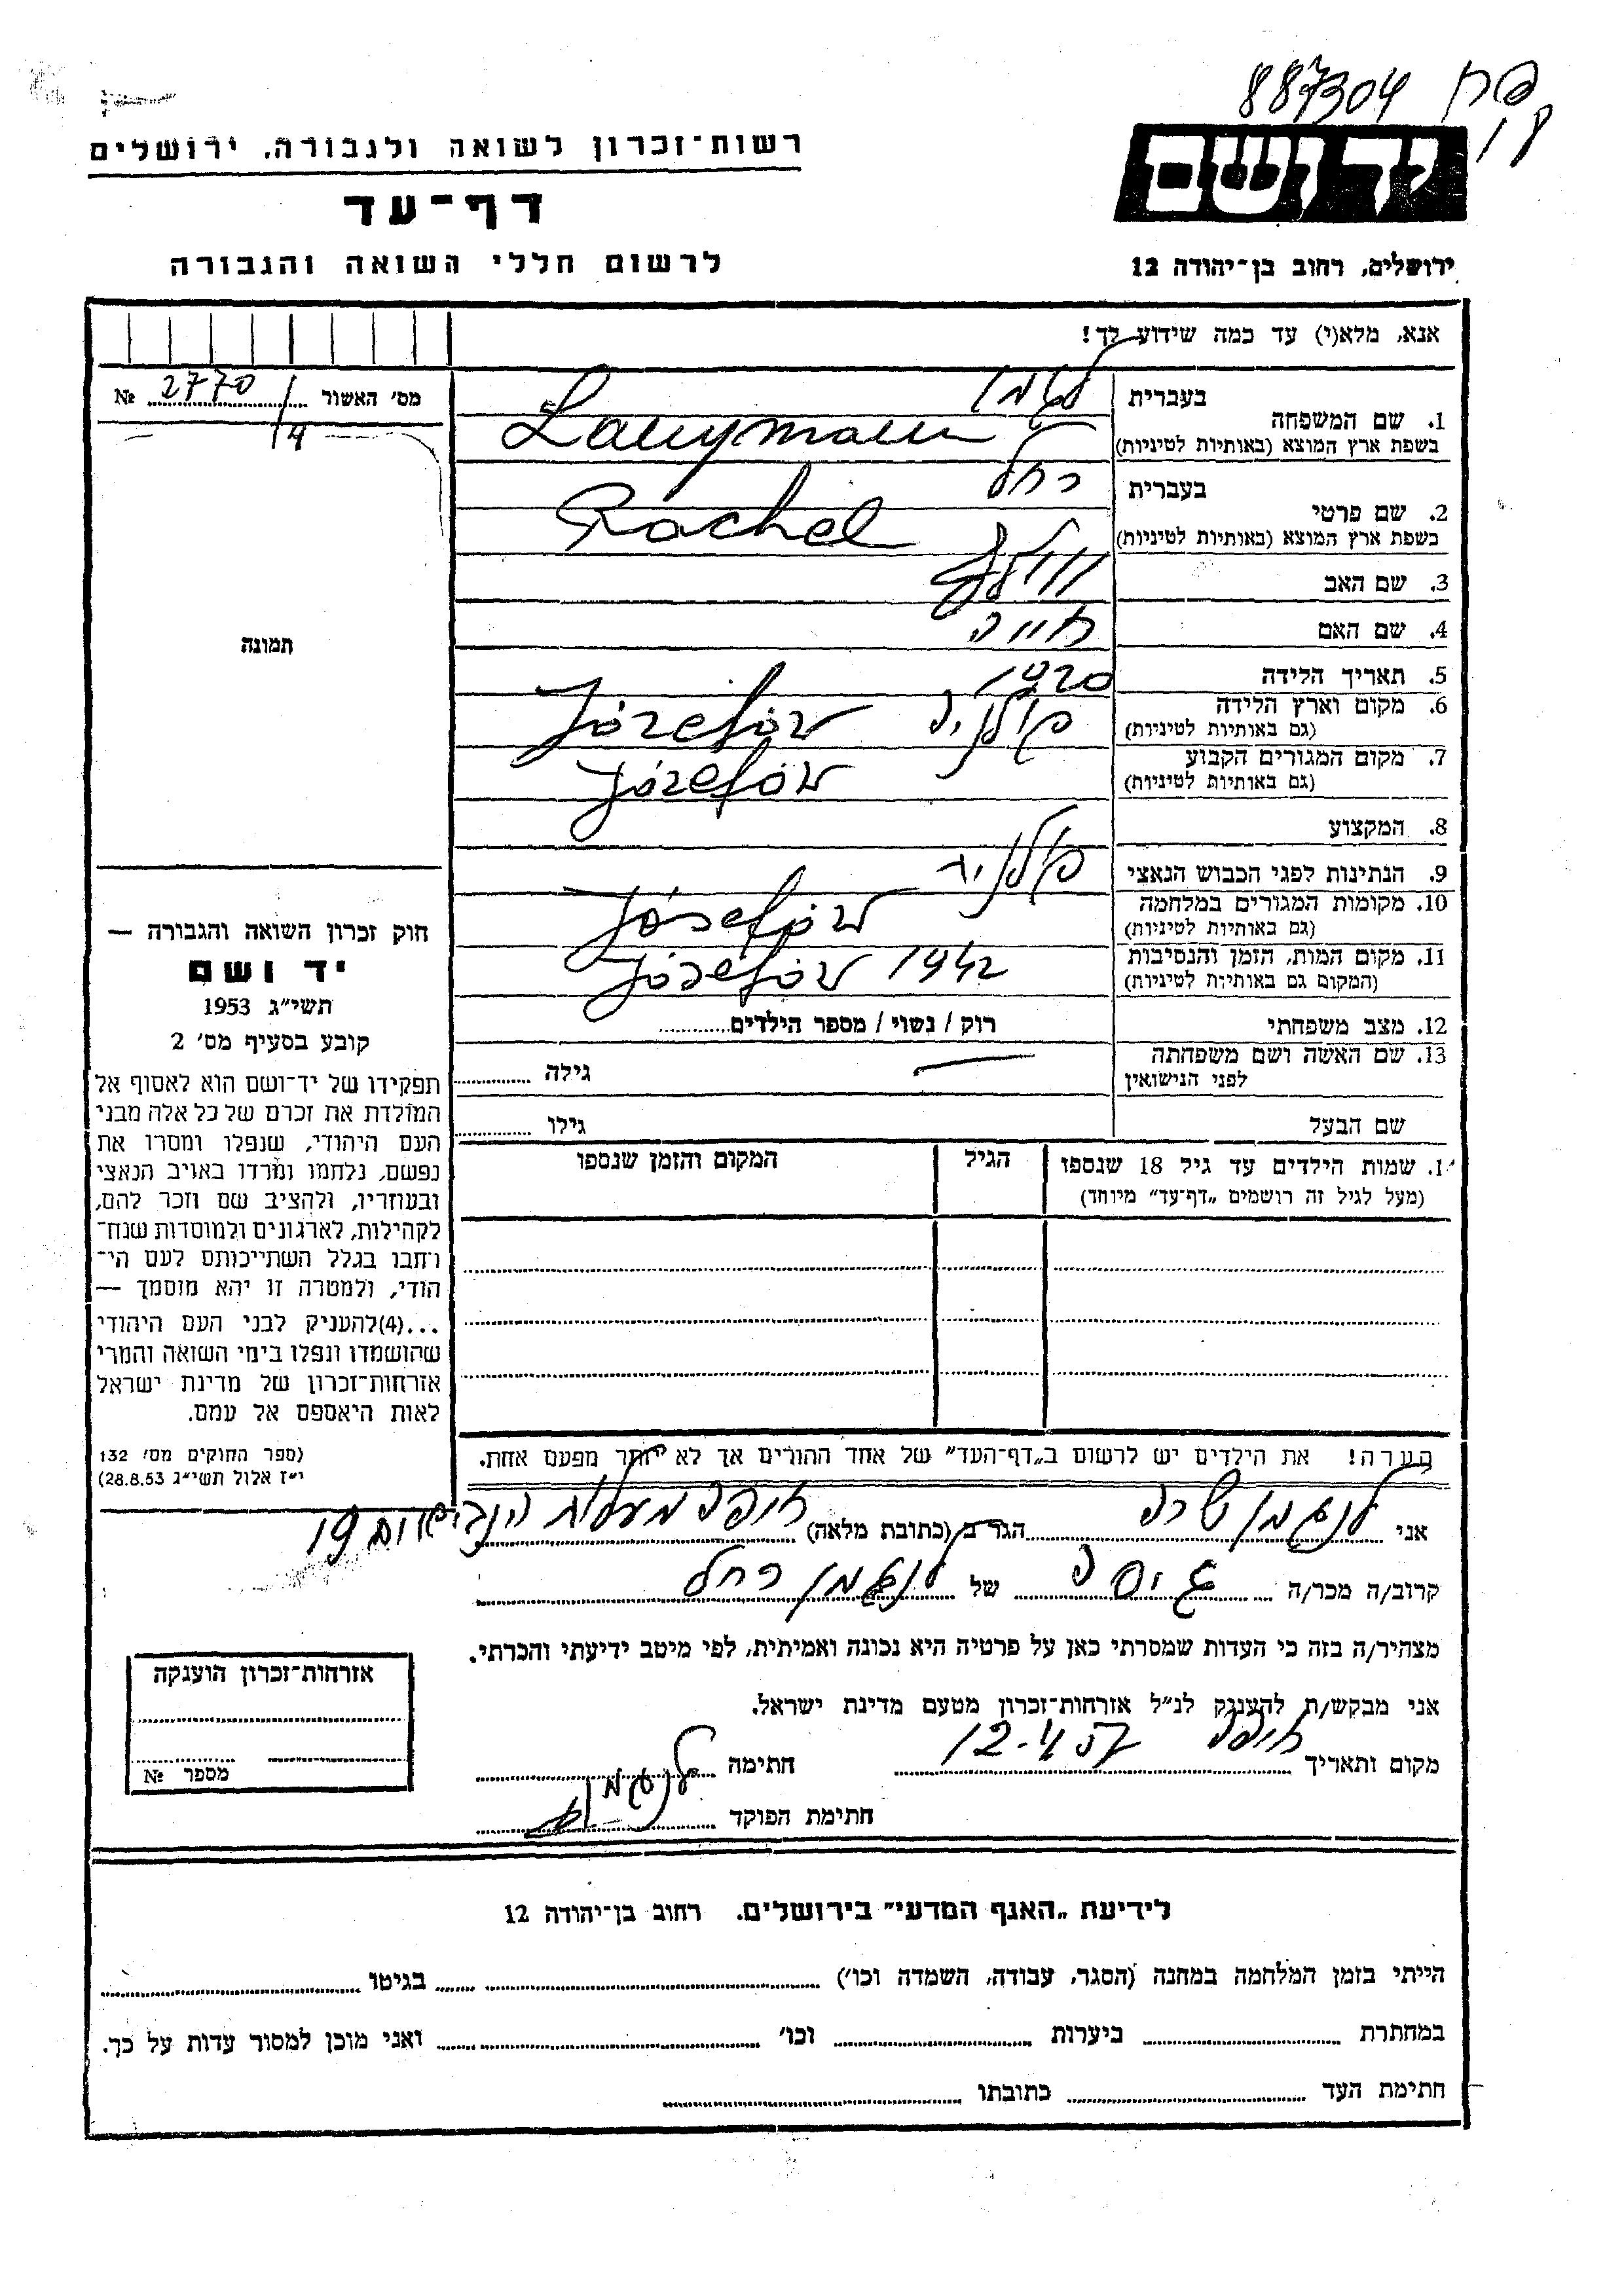 887304
רשות־זכרון לשואה ולגבורה, ירושלים
דף־עד
לרשום חללי השואה והגבורה
יד ושם
ירושלים, רחוב בן־יהודה 12
אנא, מלא(י) עד כמה שידוע לך!
מס׳ האשור 2770 №
4
תמונה
1. שם המשפחה
בעברית
בשפת ארץ המוצא (באותיות לטיניות)
2. שם פרטי
בעברית רחל
בשפת ארץ המוצא (באותיות לטיניות) Rachel
3. שם האב
4. שם האם חייה
5. תאריך הלידה 1920
6. מקום וארץ הלידה
(גם באותיות לטיניות) פולניה Józefów
7. מקום המגורים הקבוע
(גם באותיות לטיניות) Józefów
8. המקצוע
9. הנתינות לפני הכבוש הנאצי פולניה
10. מקומות המגורים במלחמה
(גם באותיות לטיניות) Józefów
11. מקום המות, הזמן והנסיבות
(המקום גם באותיות לטיניות) Józefów 1942
12. מצב משפחתי רוק / נשוי / מספר הילדים
13. שם האשה ושם משפחתה
לפני הנישואין גילה
שם הבעל גילו
1. שמות הילדים עד גיל 18 שנספו הגיל המקום והזמן שנספו
(מעל לגיל זה רושמים „דף־עד” מיוחד)
חוק זכרון השואה והגבורה —
יד ושם
תשי״ג 1953
קובע בסעיף מס׳ 2
תפקידו של יד־ושם הוא לאסוף אל
המולדת את זכרם של כל אלה מבני
העם היהודי, שנפלו ומסרו את
נפשם, נלחמו ומרדו באויב הנאצי
ובעוזריו, ולהציב שם וזכר להם,
לקהילות, לארגונים ולמוסדות שנח־
רבו בגלל השתייכותם לעם הי־
הודי, ולמטרה זו יהא מוסמך —
...(4)להעניק לבני העם היהודי
שהושמדו ונפלו בימי השואה והמרי
אזרחות־זכרון של מדינת ישראל
לאות היאספם אל עמם.
(ספר החוקים מס׳ 132
י״ז אלול תשי״ג 28.8.53)
הערה! את הילדים יש לרשום ב„דף־העד” של אחד ההורים אך לא יותר מפעם אחת.
אני לנגמן שרה הגר ב (כתובת מלאה) חיפה מעלות הנביאים 19
קרוב/ה מכר/ה גיסה של לנגמן רחל
מצהיר/ה בזה כי העדות שמסרתי כאן על פרטיה היא נכונה ואמיתית, לפי מיטב ידיעתי והכרתי.
אני מבקש/ת להעניק לנ״ל אזרחות־זכרון מטעם מדינת ישראל.
מקום ותאריך חיפה 12.4.57 חתימה לנגמן
חתימת הפוקד
אזרחות־זכרון הוענקה
מספר №
לידיעת „האגף המדעי” בירושלים, רחוב בן־יהודה 12
הייתי בזמן המלחמה במחנה (הסגר, עבודה, השמדה וכו׳) בגיטו
במחתרת ביערות וכו׳ ואני מוכן למסור עדות על כך.
חתימת העד כתובתו